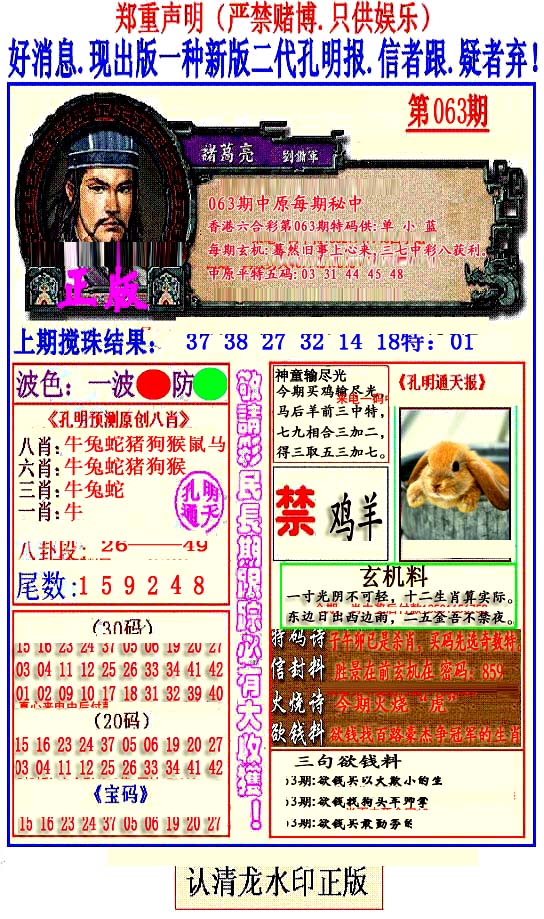 郑重声明（严禁赌博.只供娱乐）
好消息.现出版一种新版二代孔明报.信者跟.疑者弃!
第063期
諸葛亮 劉備軍
063期中原每期秘中
香港六合彩第063期特码供: 单 小 蓝
每期玄机: 蓦然旧事上心来, 三七中彩八获利。
中原平特五码: 03 31 44 45 48
正版
上期搅珠结果： 37 38 27 32 14 18特：01
波色：一波 防
《孔明预测原创八肖》
八肖:牛兔蛇猪狗猴鼠马
六肖:牛兔蛇猪狗猴
三肖:牛兔蛇
一肖:牛
孔明通天
八卦段: 26——49
尾数:159248
(30码)
15 16 23 24 37 05 06 19 20 27
03 04 11 12 25 26 33 34 41 42
01 02 09 10 17 18 31 32 39 40
(20码)
15 16 23 24 37 05 06 19 20 27
03 04 11 12 25 26 33 34 41 42
《宝码》
15 16 23 24 37 05 06 19 20 27
敬請彩民長期跟踪必有大收獲！
神童输尽光
今期买鸡输尽光,
马后羊前三中特,
七九相合三加二,
得三取五三加七。
《孔明通天报》
禁 鸡羊
玄机料
一寸光阴不可轻，十二生肖算实际。
东边日出西边南，二五金吾不禁夜。
特码诗 子午卯巳是杀肖，买码先选奇数特
信封料 胜景在前玄机在 密码：859
火烧诗 今期火烧“虎”
欲钱料 欲钱找百路豪杰争冠军的生肖
三句欲钱料
3期:欲钱买以大欺小的生
3期:欲钱找狗头军师掌
3期:欲钱买最勤劳的
认清龙水印正版